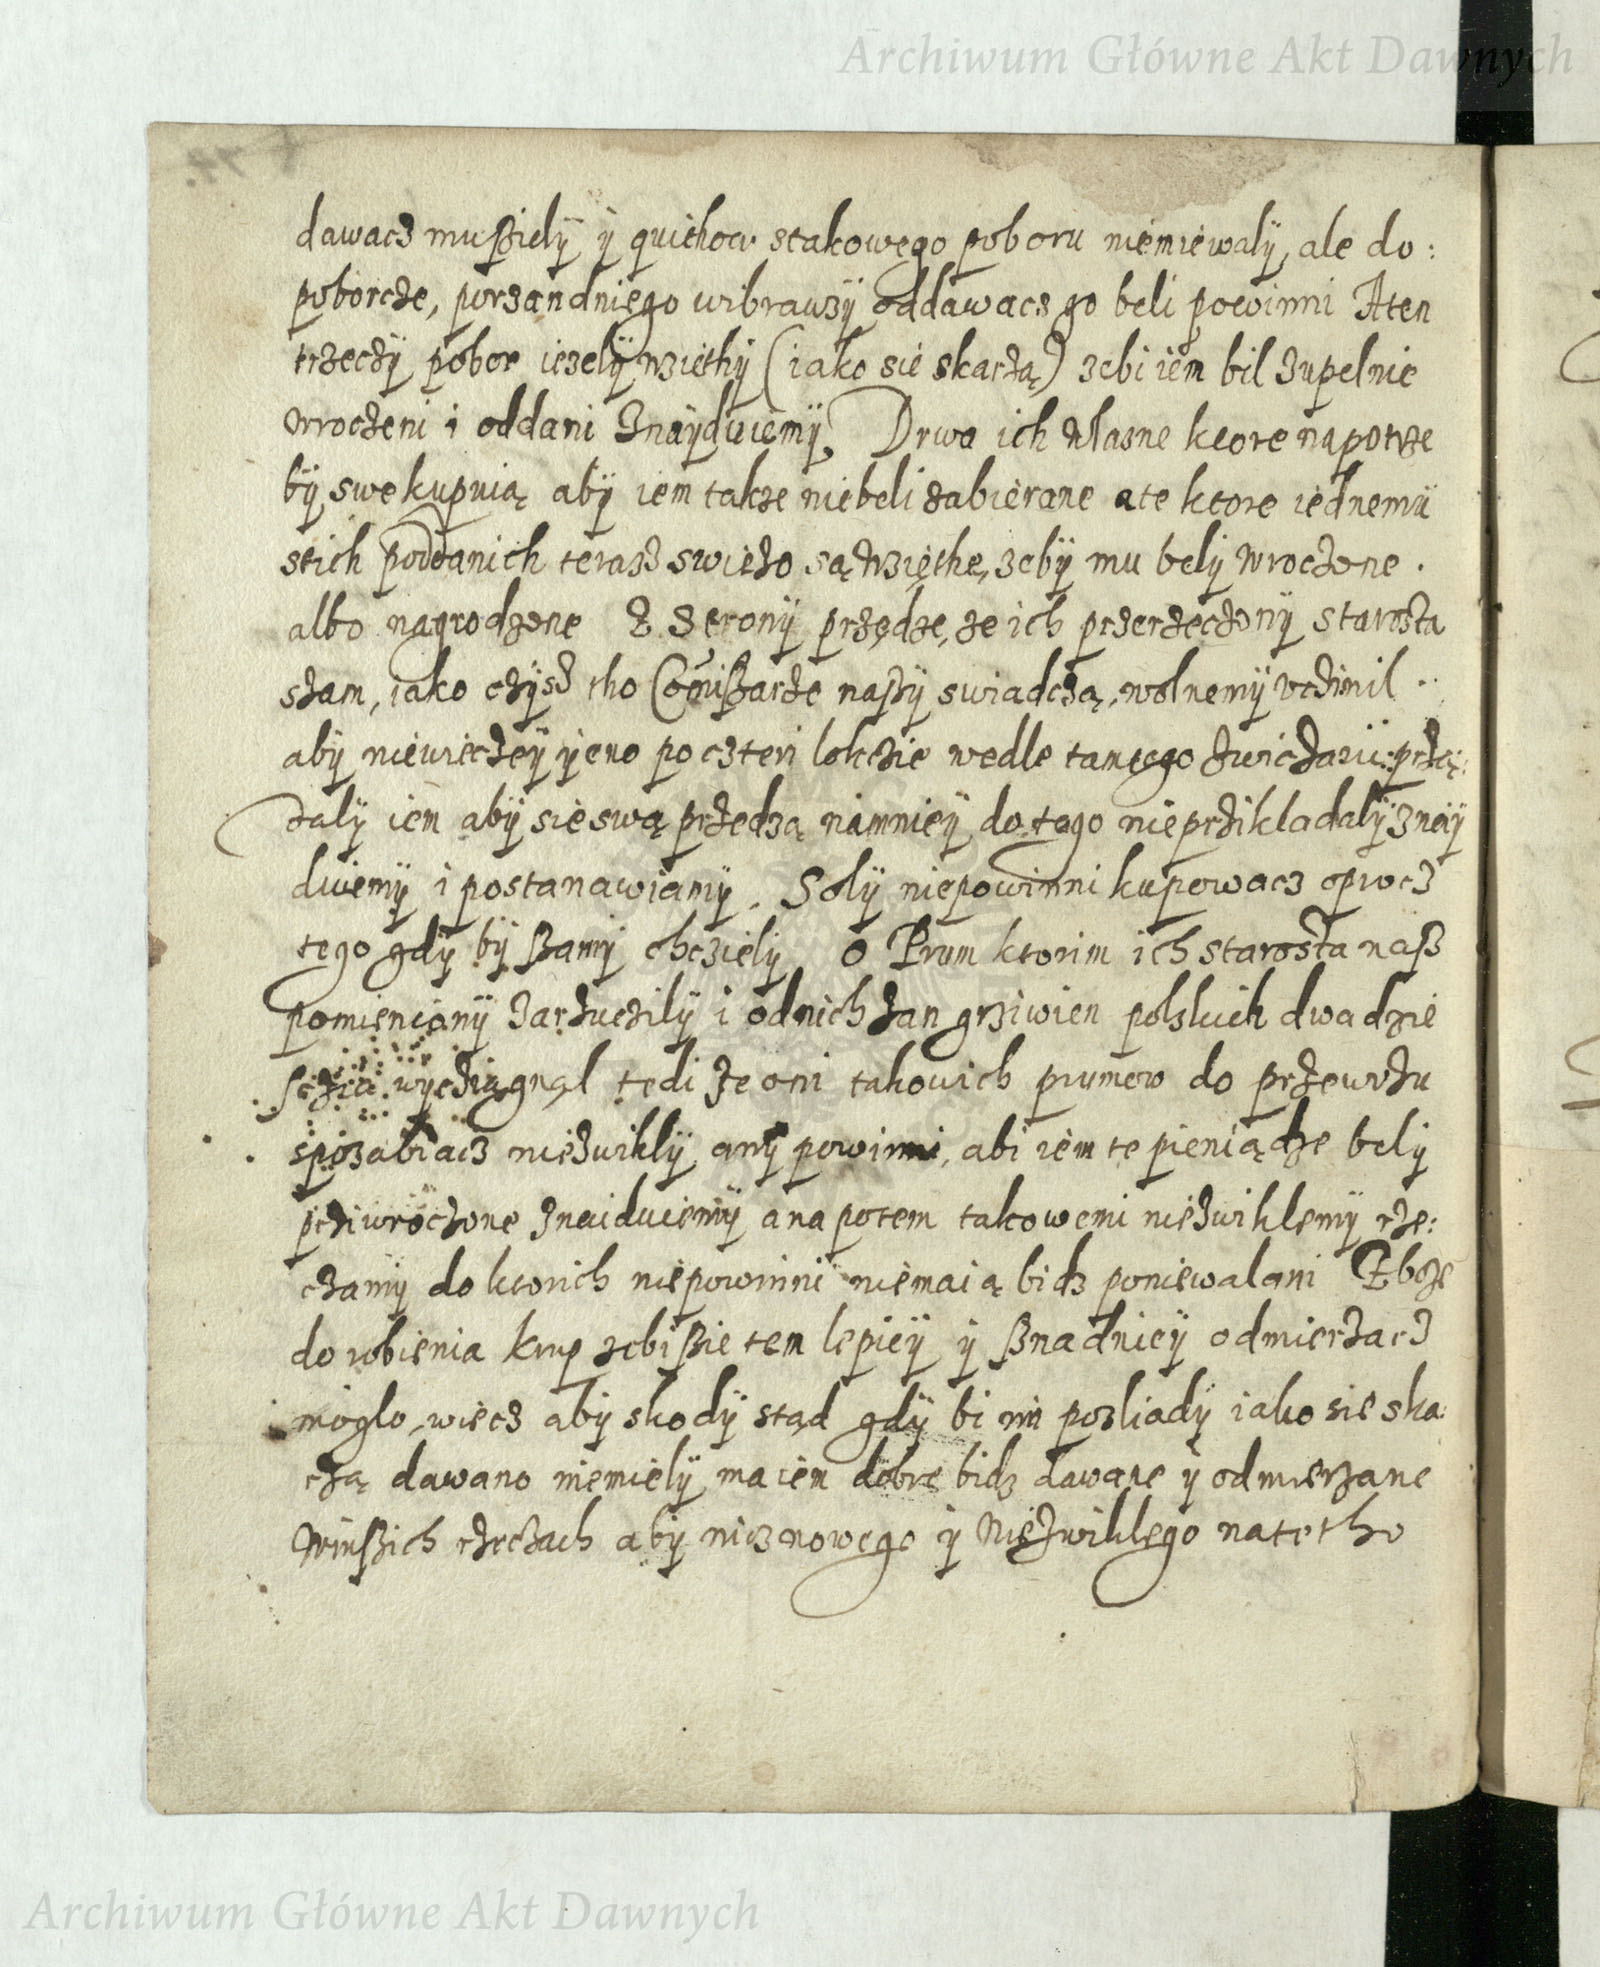 Archiwum Główne Akt Dawnych
dawacz mußiely ÿ quithow stakowego poboru niemiewalÿ, ale do:
poborcze, porzandniego wibrawzÿ oddawacz go beli powinni Aten
trzeczÿ pobor iezelÿ wziethÿ (iako sie skarzą) zebi iem bil zupelnie
wroczeni i oddani znaÿduiemÿ, Drwa ich własne ktore napotrze
bÿ swe kupuią abÿ iem takze niebeli zabierane ate ktore iednemu
stich poddanich terasz swiezo są wziethe, zebÿ mu belÿ wroczone.
albo nagrodzone Z stronÿ przędze, ze ich przerzeczonÿ starosta
szam, iako czÿsz tho Comißarze naßÿ swiadczą, wolnemÿ vczinil
abÿ niewieczeÿ ÿeno po czteri lokczie wedle tamtego zwiczaiu: przę:
dalÿ iem abÿ sie swą przedzą namnieÿ do tego nieprzikladalÿ znaÿ
duiemÿ i postanawiamÿ. Solÿ niepowinni kupowacz oprocz
tego gdÿ bÿ ßamÿ chczielÿ O Prum ktorim ich starosta naß
pomienionÿ zarzuczilÿ i odnich zan grziwien polskich dwadzie
sczia wyeziągnąl tedi ze oni takovich prumow do przewozu
sposabiacz niezwiklÿ anÿ powinni, abi iem te pieniądze belÿ
prziwroczone znaiduiemÿ ana potem takowemi niezwiklemÿ rze:
czamÿ do ktorich niepowinni niemaią bidz poniewalani Zboze
do robienia krup zebi ßie tem lepieÿ ÿ ßnadnieÿ odmierzacz
moglo, wiecz abÿ skodÿ stąd gdÿ bi im posladÿ iako sie ska
rzą dawano niemielÿ ma iem dobre bidz dawane ÿ odmierzane
Winßich rzeczach abÿ nicznowego ÿ Niezwiklego natetho
Archiwum Główne Akt Dawnych